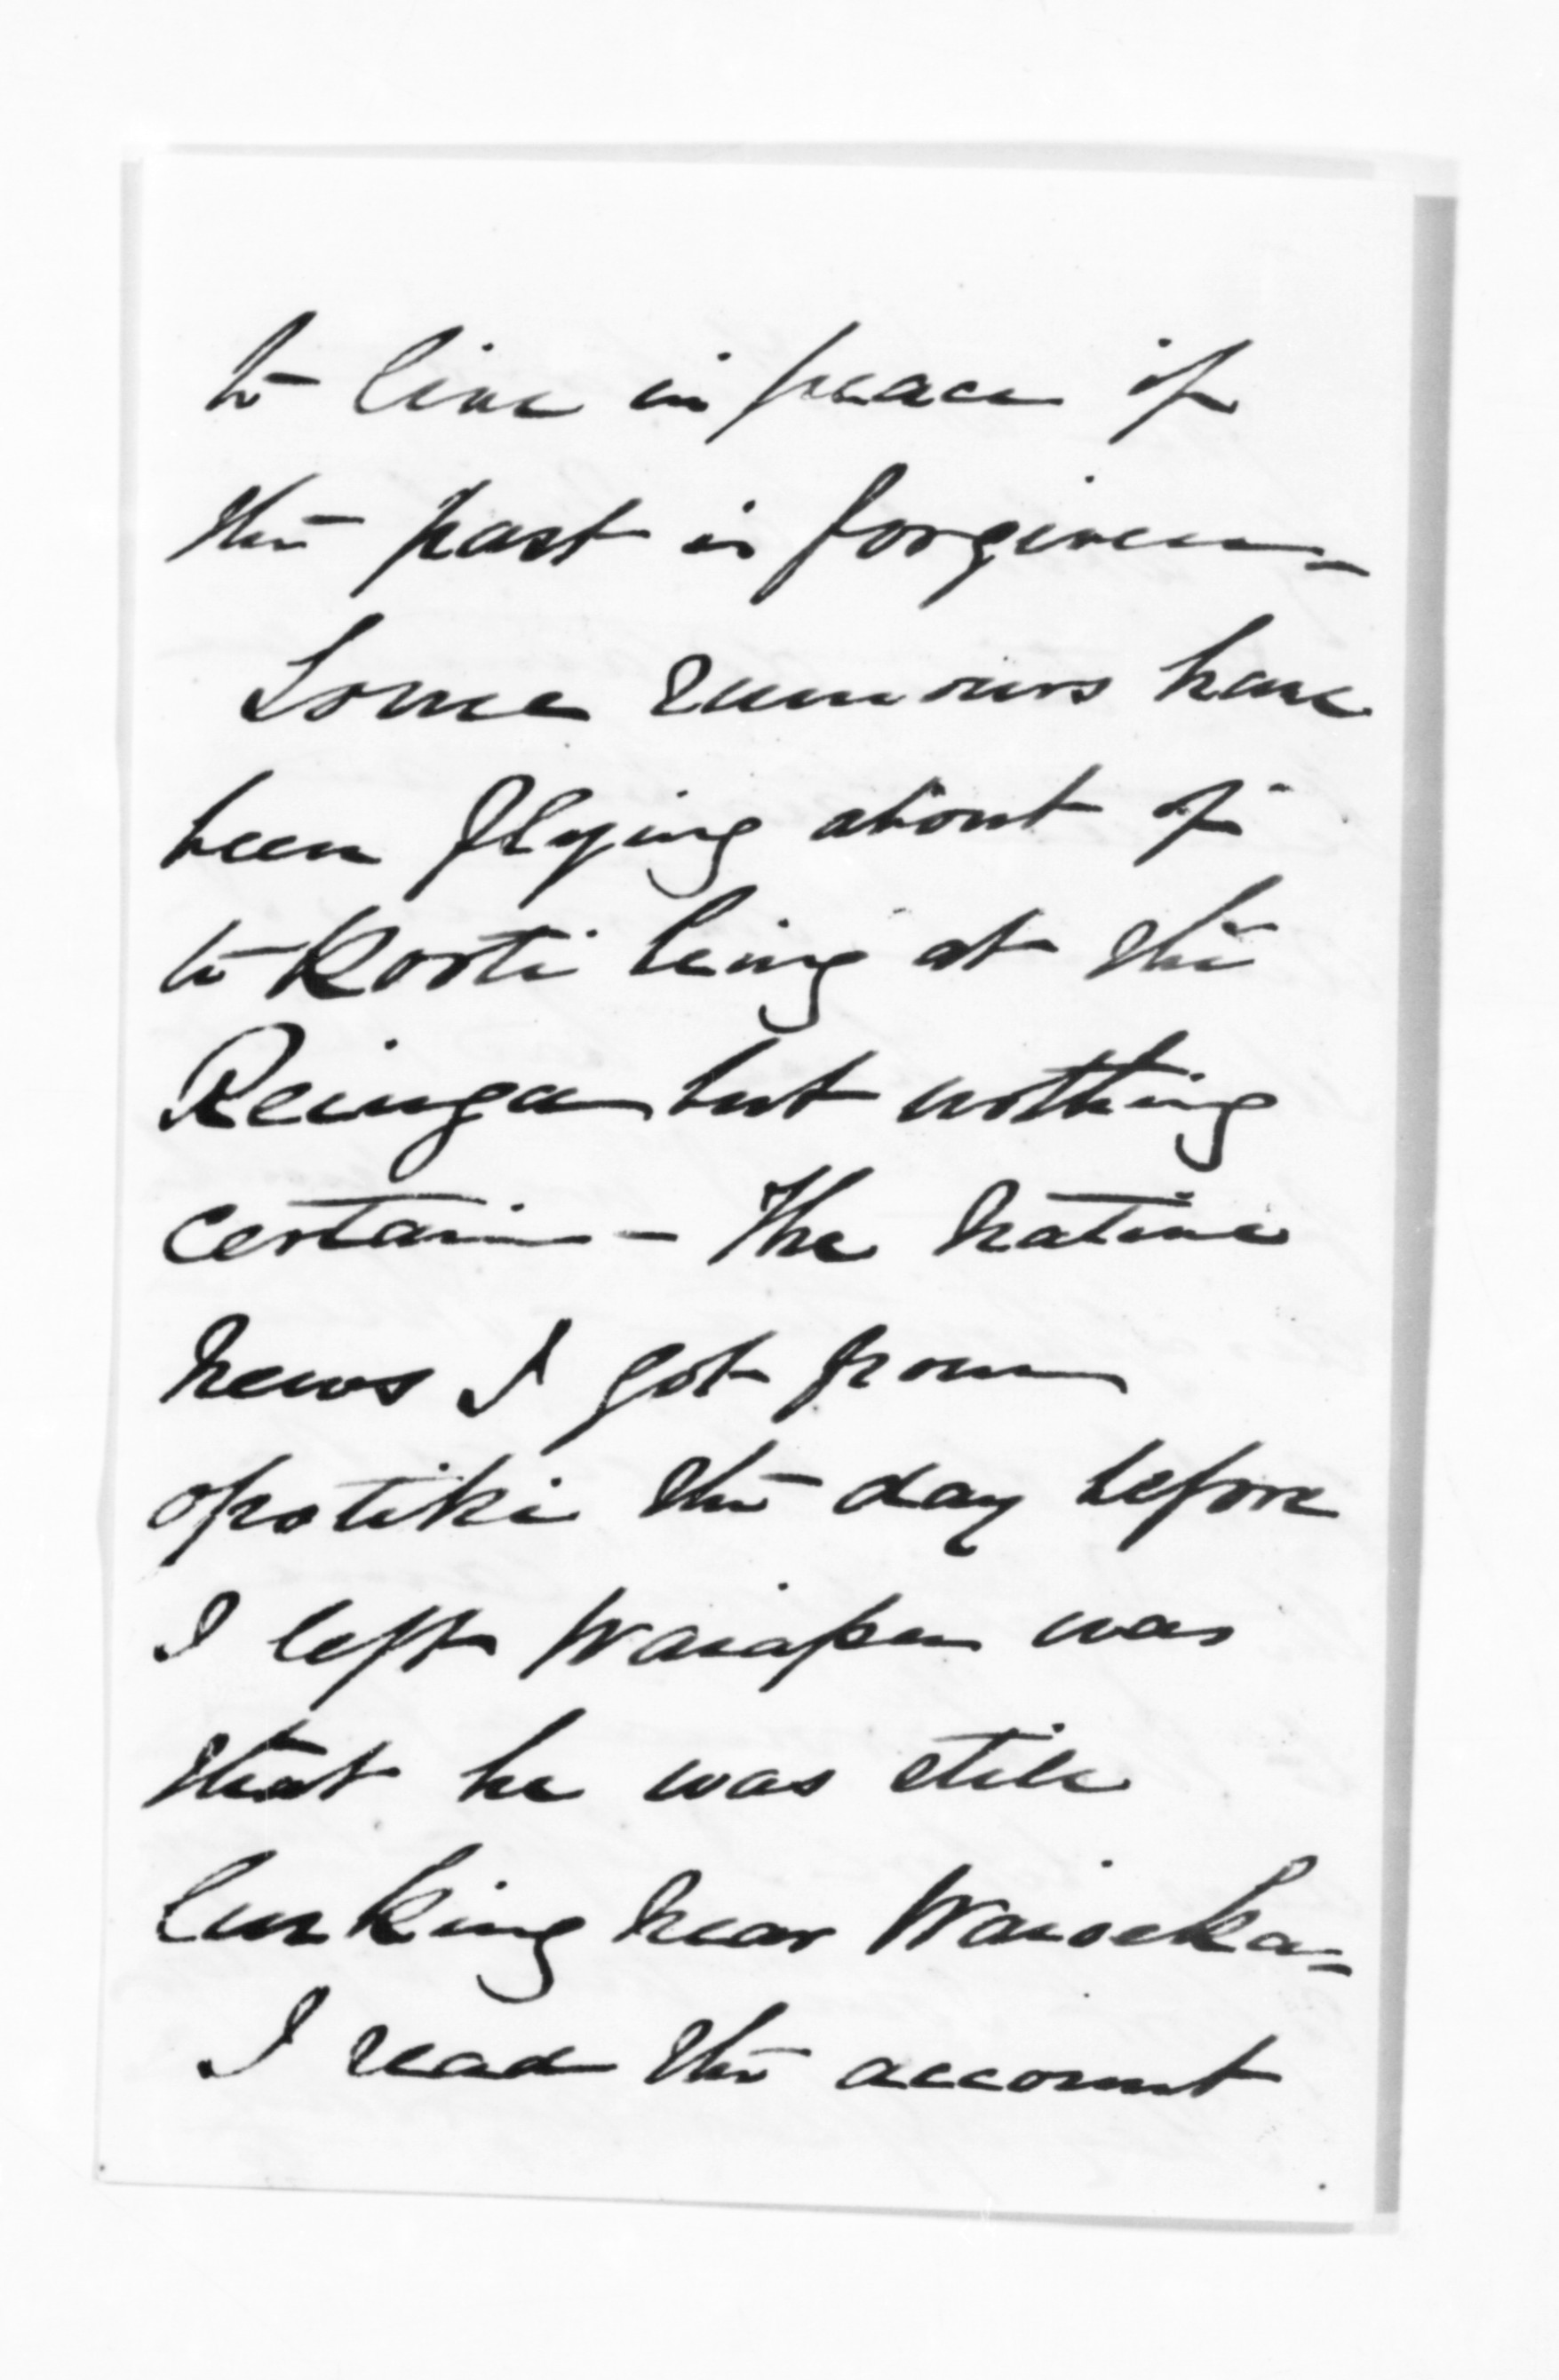 to live in peace if
the past is forgiven -
Some rumours have
been flying about of
te Kooti being at the
Reinga but nothing
certain - The native
news I got from
opotiki the day before
I left Waiapu was
that he was still
lurking near Waioeka -
I read the account